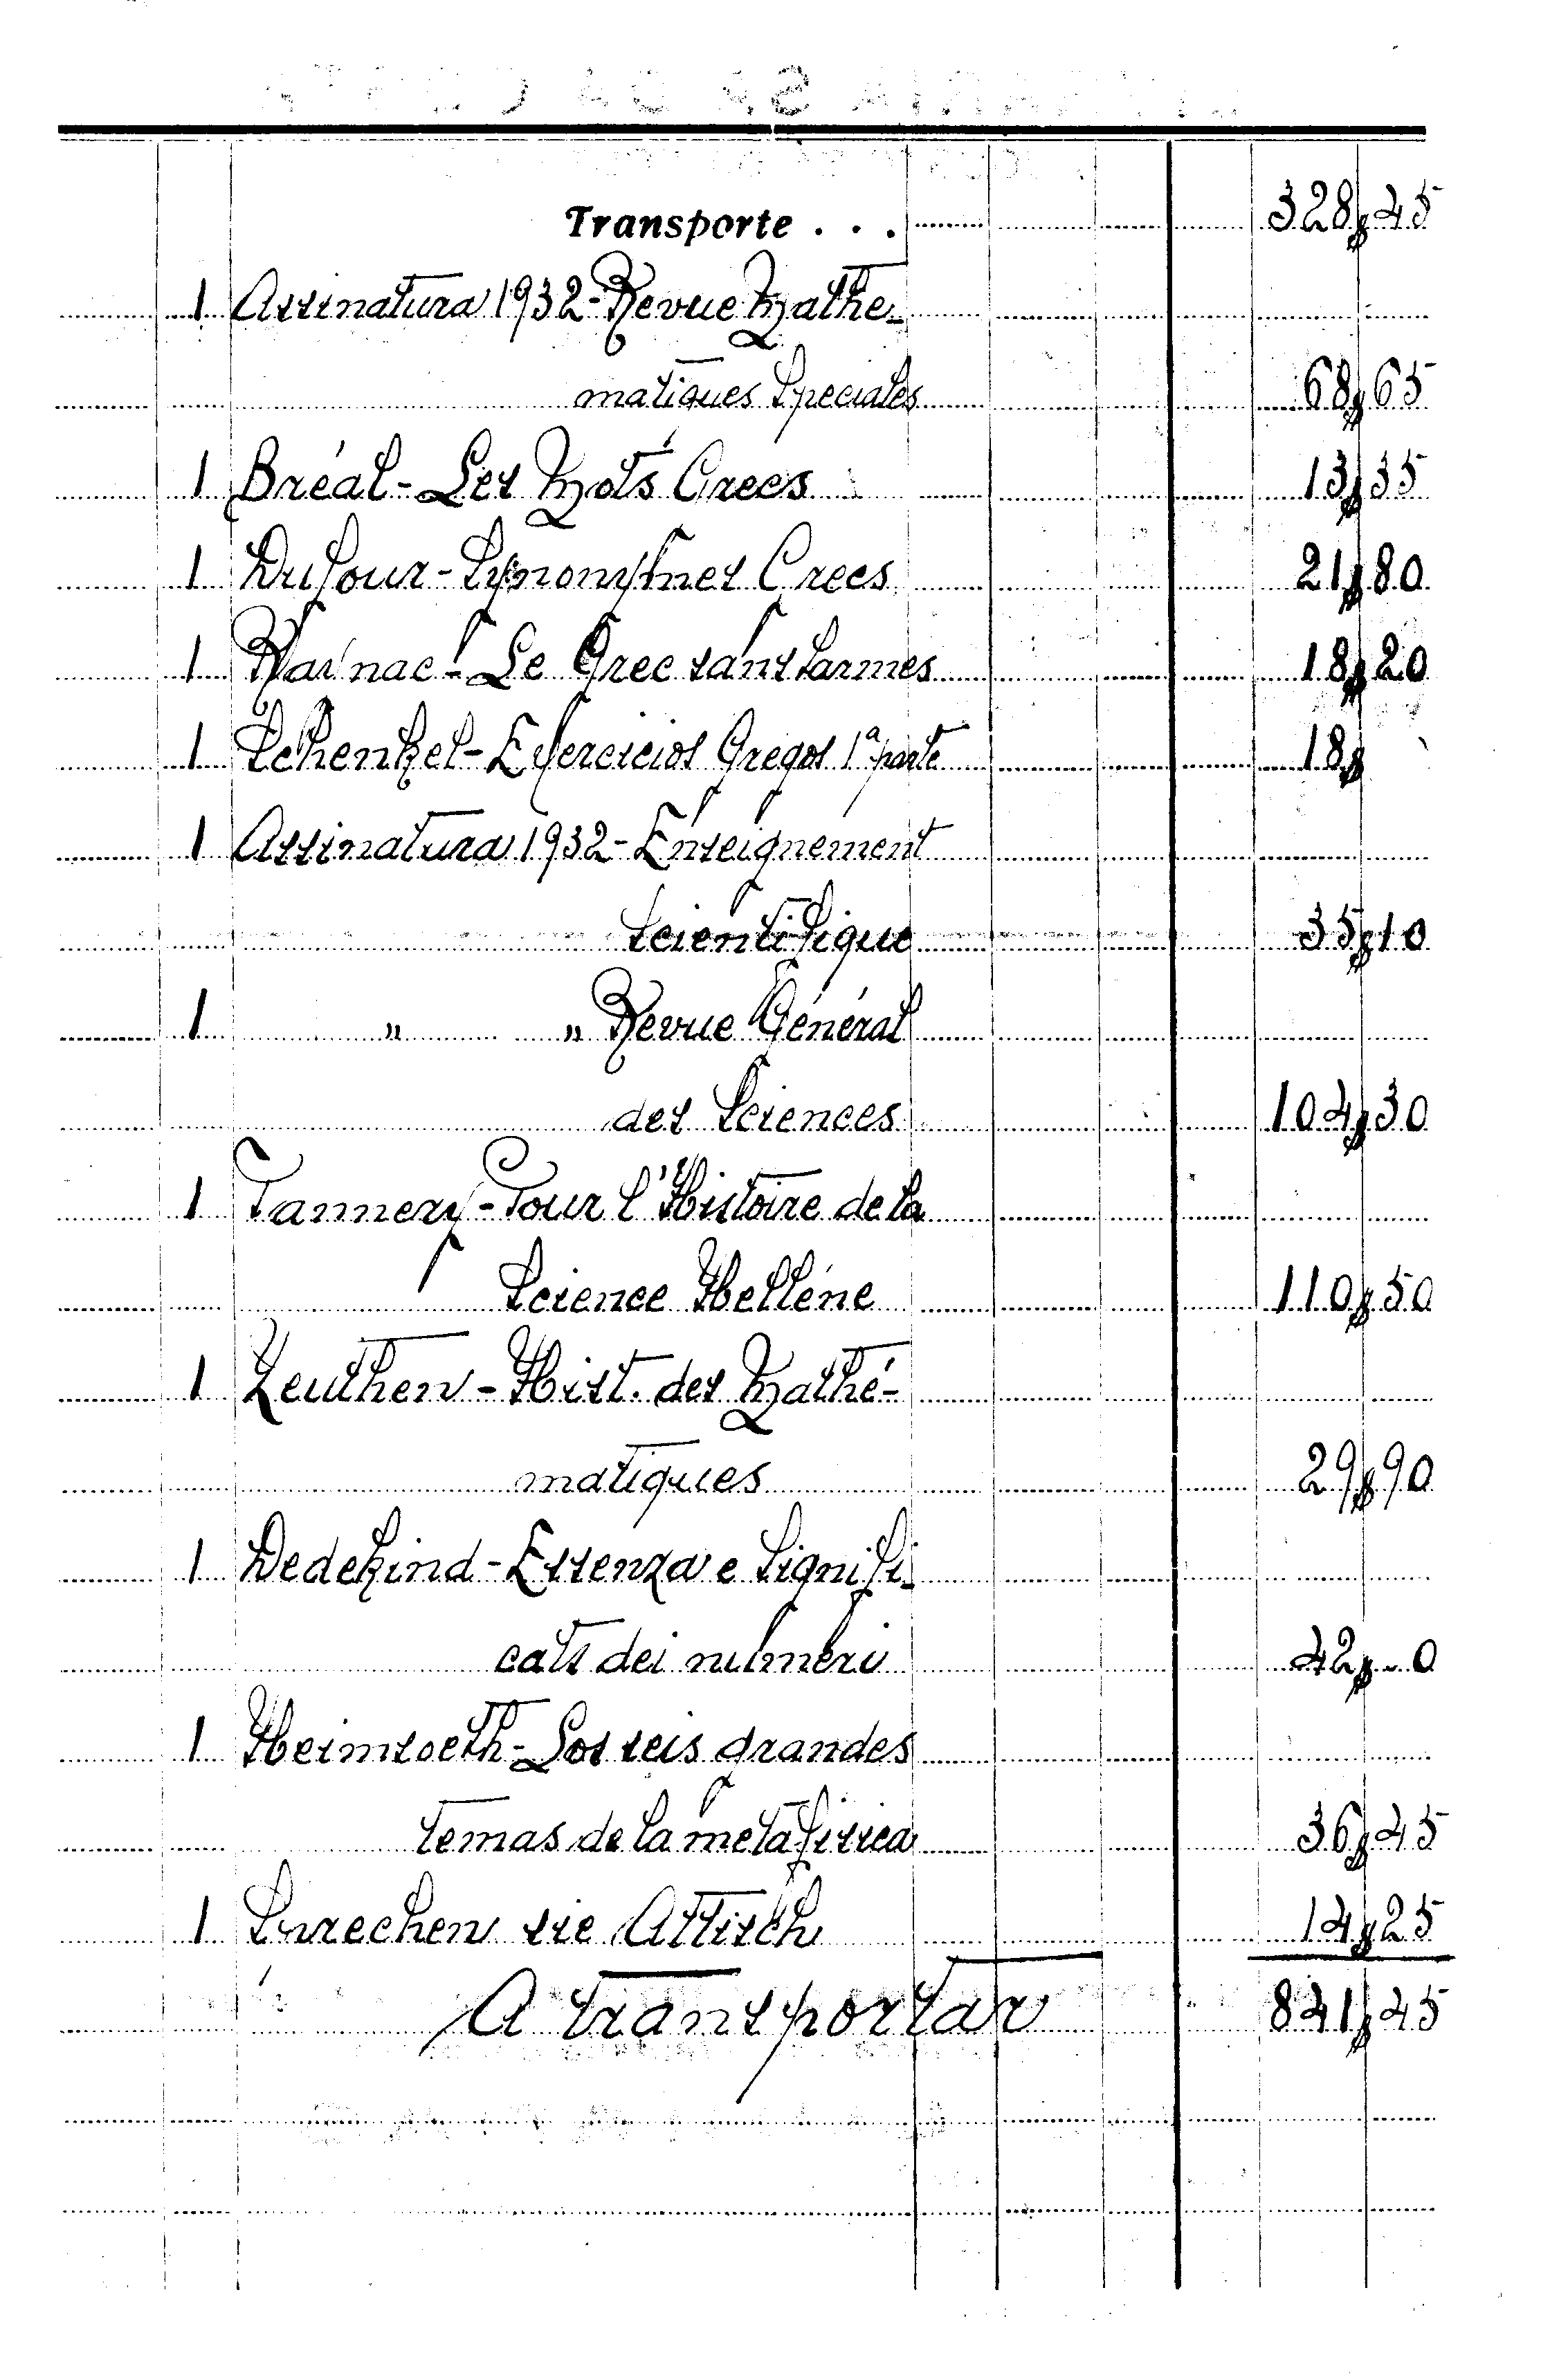 Transporte . . . 328$45
1 Assinatura 1932 - Revue Mathe-
matiques Speciales 68$65
1 Bréal - Les Mots Grecs 13$35
1 Dufour - Synonymes Grecs 21$80
1 Rainac - Le Grec sans larmes 18$20
1 Schenkel - Exercicios Gregos 1ª parte 18$
1 Assinatura 1932 - Enseignement
Scientifique 35$10
1 " " Revue Général
des Sciences 104$30
1 Tannery - Pour l'Histoire de la
Science Helléne 110$50
1 Zeuthen - Hist. des Mathé-
matiques 29$90
1 Dedekind - Essenza e Signifi-
cats dei numeri 42$-0
1 Heimsoeth - Los seis grandes
temas de la metafisica 36$45
1 Sprechen sie Attisch 14$25
A transportar 841$45